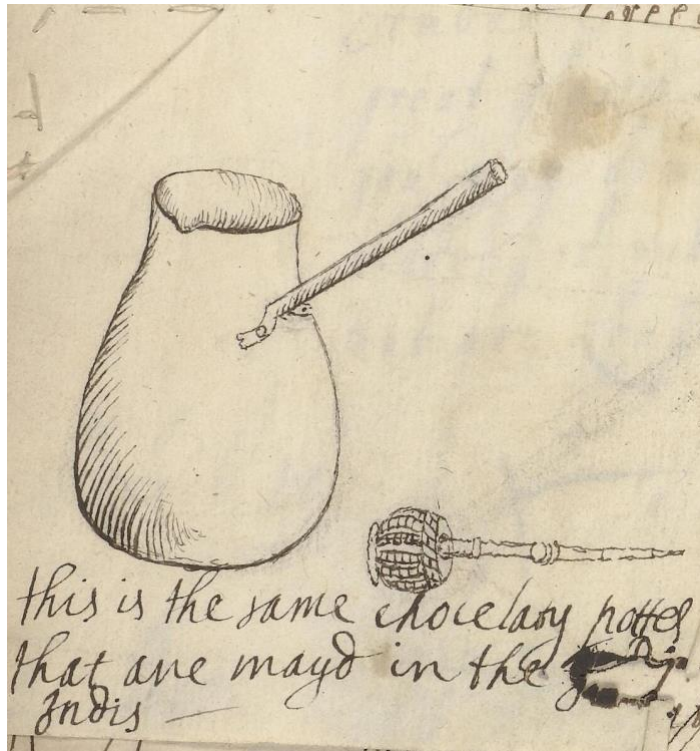 this is the same chocelary pottes
that are mayd in the
Indis